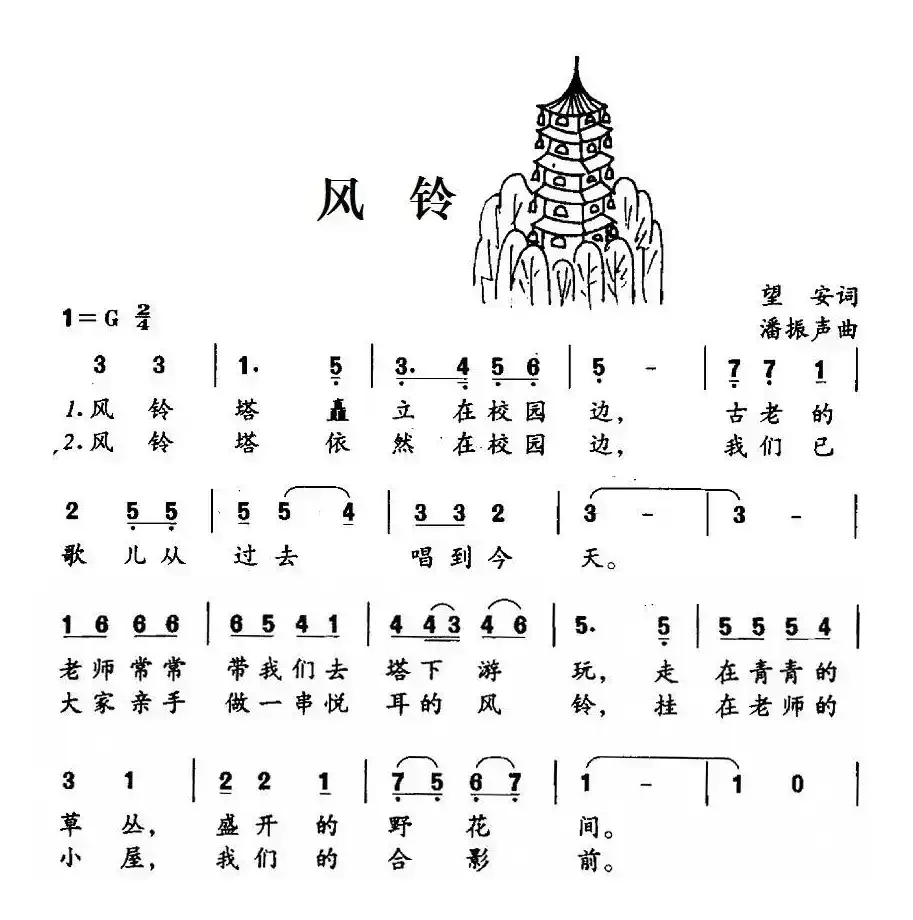 风 铃
望 安词
1=G 2/4
潘振声曲
3 3 | 1. 5 | 3. 4 5 6 | 5 - | 7 7 1 |
1.风 铃 塔 矗 立 在校园 边, 古老的
2.风 铃 塔 依 然 在校园 边, 我们已
2 5 5 | 5 5 4 | 3 3 2 | 3 - | 3 - |
歌 儿从 过去 唱到今 天。
1 6 6 6 | 6 5 4 1 | 4 4 3 4 6 | 5. 5 | 5 5 5 4 |
老师常常 带我们去 塔下游 玩, 走 在青青的
大家亲手 做一串悦 耳的风 铃, 挂 在老师的
3 1 | 2 2 1 | 7 5 6 7 | 1 - | 1 0 |
草 丛, 盛开的 野 花 间。
小 屋, 我们的 合 影 前。